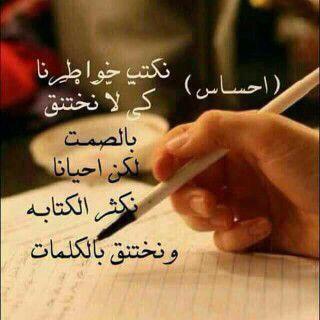 (احساس)
نكتب خواطرنا
كي لا نختنق
بالصمت
لكن احيانا
نكثر الكتابه
ونختنق بالكلمات